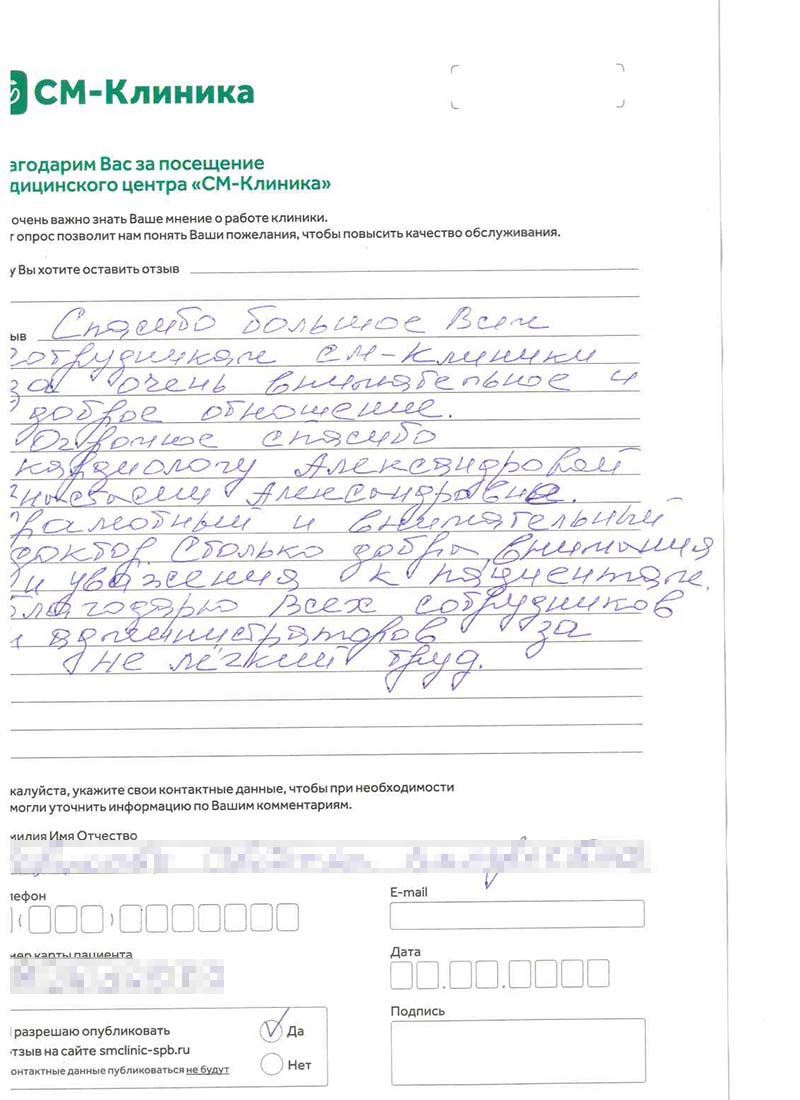 СМ-Клиника
агодарим Вас за посещение
дицинского центра «СМ-Клиника»
очень важно знать Ваше мнение о работе клиники.
т опрос позволит нам понять Ваши пожелания, чтобы повысить качество обслуживания.
у Вы хотите оставить отзыв
ыв Спасибо большое Всем
сотрудникам СМ-Клиники
за очень внимательное и
доброе отношение.
Огромное спасибо
кардиологу Александровой
Анастасии Александровне.
Грамотный и внимательный
доктор. Столько добра, внимания
и уважения к пациентам.
Благодарю Всех сотрудников
и администраторов за
не лёгкий труд.
жалуйста, укажите свои контактные данные, чтобы при необходимости
могли уточнить информацию по Вашим комментариям.
милия Имя Отчество
лефон
E-mail
мер карты пациента
Дата
разрешаю опубликовать
отзыв на сайте smclinic-spb.ru
онтактные данные публиковаться не будут
Да
Нет
Подпись